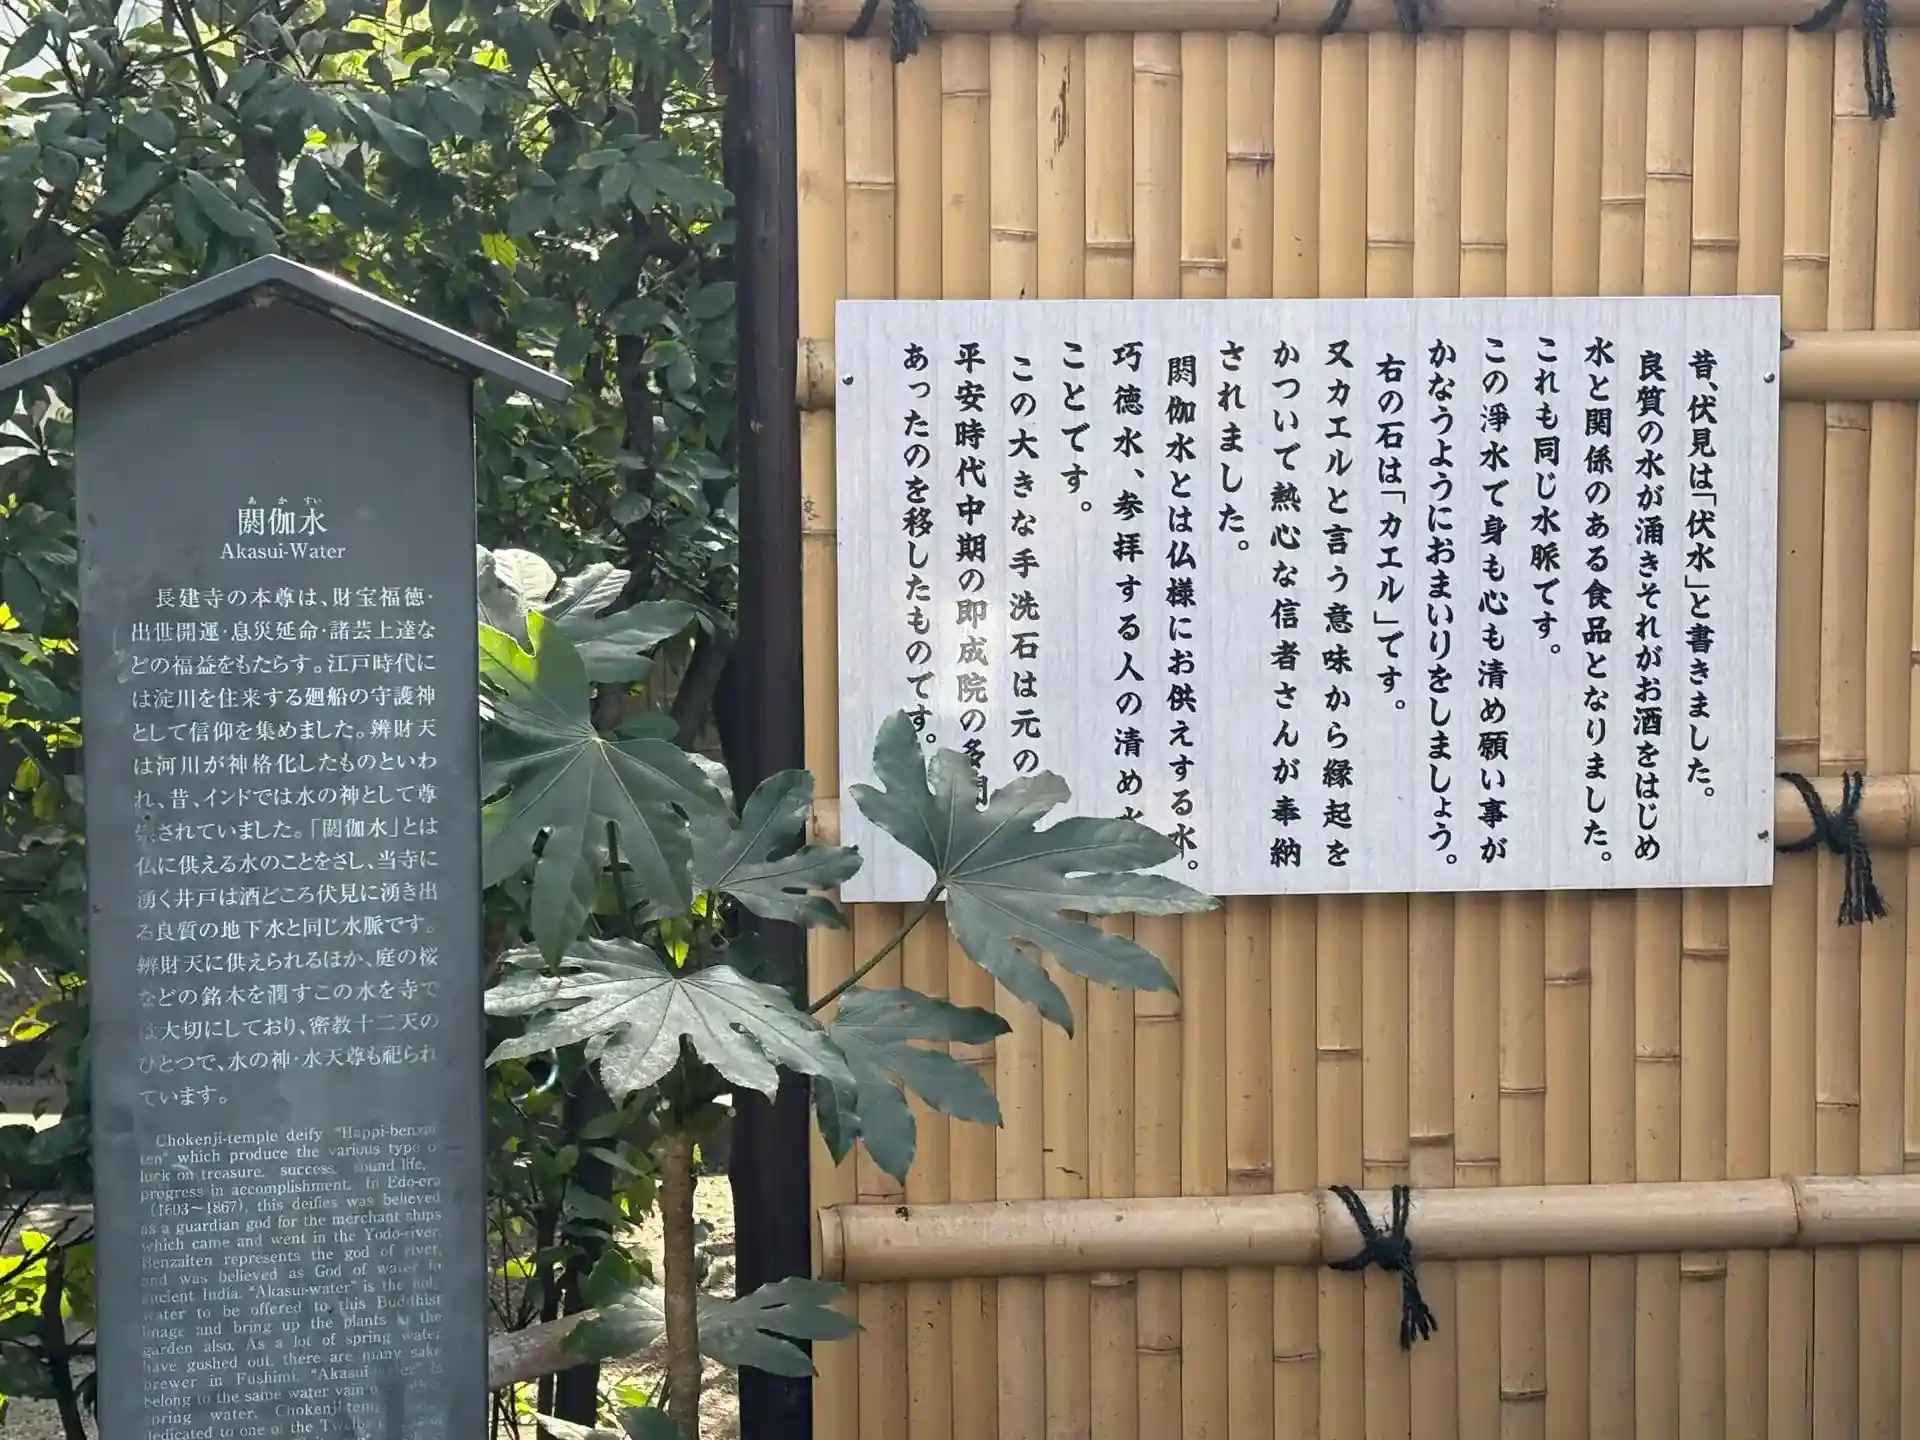 あかすい
閼伽水
Akasui-Water
長建寺の本尊は、財宝福徳・
出世開運・息災延命・諸芸上達な
どの福益をもたらす。江戸時代に
は淀川を往来する廻船の守護神
として信仰を集めました。辨財天
は河川が神格化したものといわ
れ、昔、インドでは水の神として尊
崇されていました。「閼伽水」とは
仏に供える水のことをさし、当寺に
湧く井戸は酒どころ伏見に湧き出
る良質の地下水と同じ水脈です。
辨財天に供えられるほか、庭の桜
などの銘木を潤すこの水を寺で
は大切にしており、密教十二天の
ひとつで、水の神・水天尊も祀られ
ています。
Chokenji-temple deify "Happi-benzai
ten" which produce the various type
luck on treasure, success, sound life,
progress in accomplishment. In Edo-era
(1603~1867), this deifies was believed
as a guardian god for the merchant ships
which came and went in the Yodo-river.
Benzaiten represents the god of river,
and was believed as God of water in
ancient India. "Akasui-water" is the
water to be offered to this Buddhist
image and bring up the plants in the
garden also. As a lot of spring water
have gushed out, there are many sake
brewer in Fushimi. "Akasui-water" is
belong to the same water vain
spring water. Chokenji
dedicated to one of the
昔、伏見は「伏水」と書きました。
良質の水が涌きそれがお酒をはじめ
水と関係のある食品となりました。
これも同じ水脈です。
この淨水で身も心も清め願い事が
かなうようにおまいりをしましょう。
右の石は「カエル」です。
又カエルと言う意味から縁起を
かついで熱心な信者さんが奉納
されました。
閼伽水とは仏様にお供えする水。
巧徳水、参拝する人の清め水
ことです。
この大きな手洗石は元の
平安時代中期の即成院の多
あったのを移したものです。